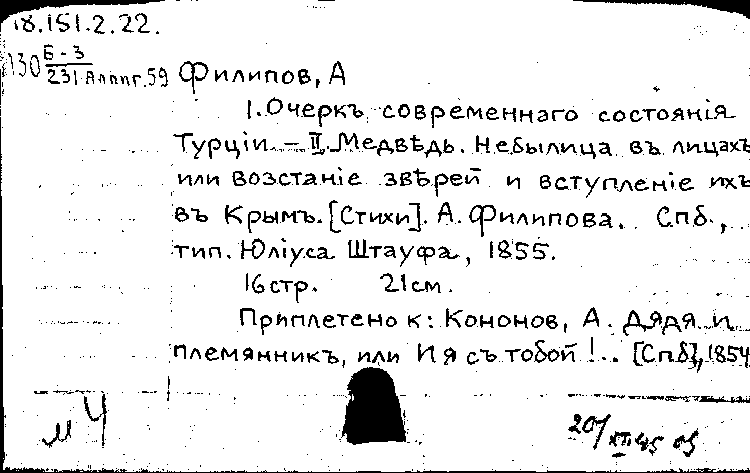 18.151.2.22.
130 Б-3
231 Аллиг.59 Филипов, А
I. Очеркъ современнаго состоянія
Турціи – II. Медвѣдь. Небылица въ лицахъ
или возстаніе звѣрей и вступленіе ихъ
въ Крымъ. [Стихи]. А. Филипова. Спб.,
тип. Юліуса Штауфа, 1855.
16 стр. 21 см.
Приплетено к: Кононов, А. Дядя и
племянникъ, или И я съ тобой!.. [Спб], 1854
м Ч
20/XII 45